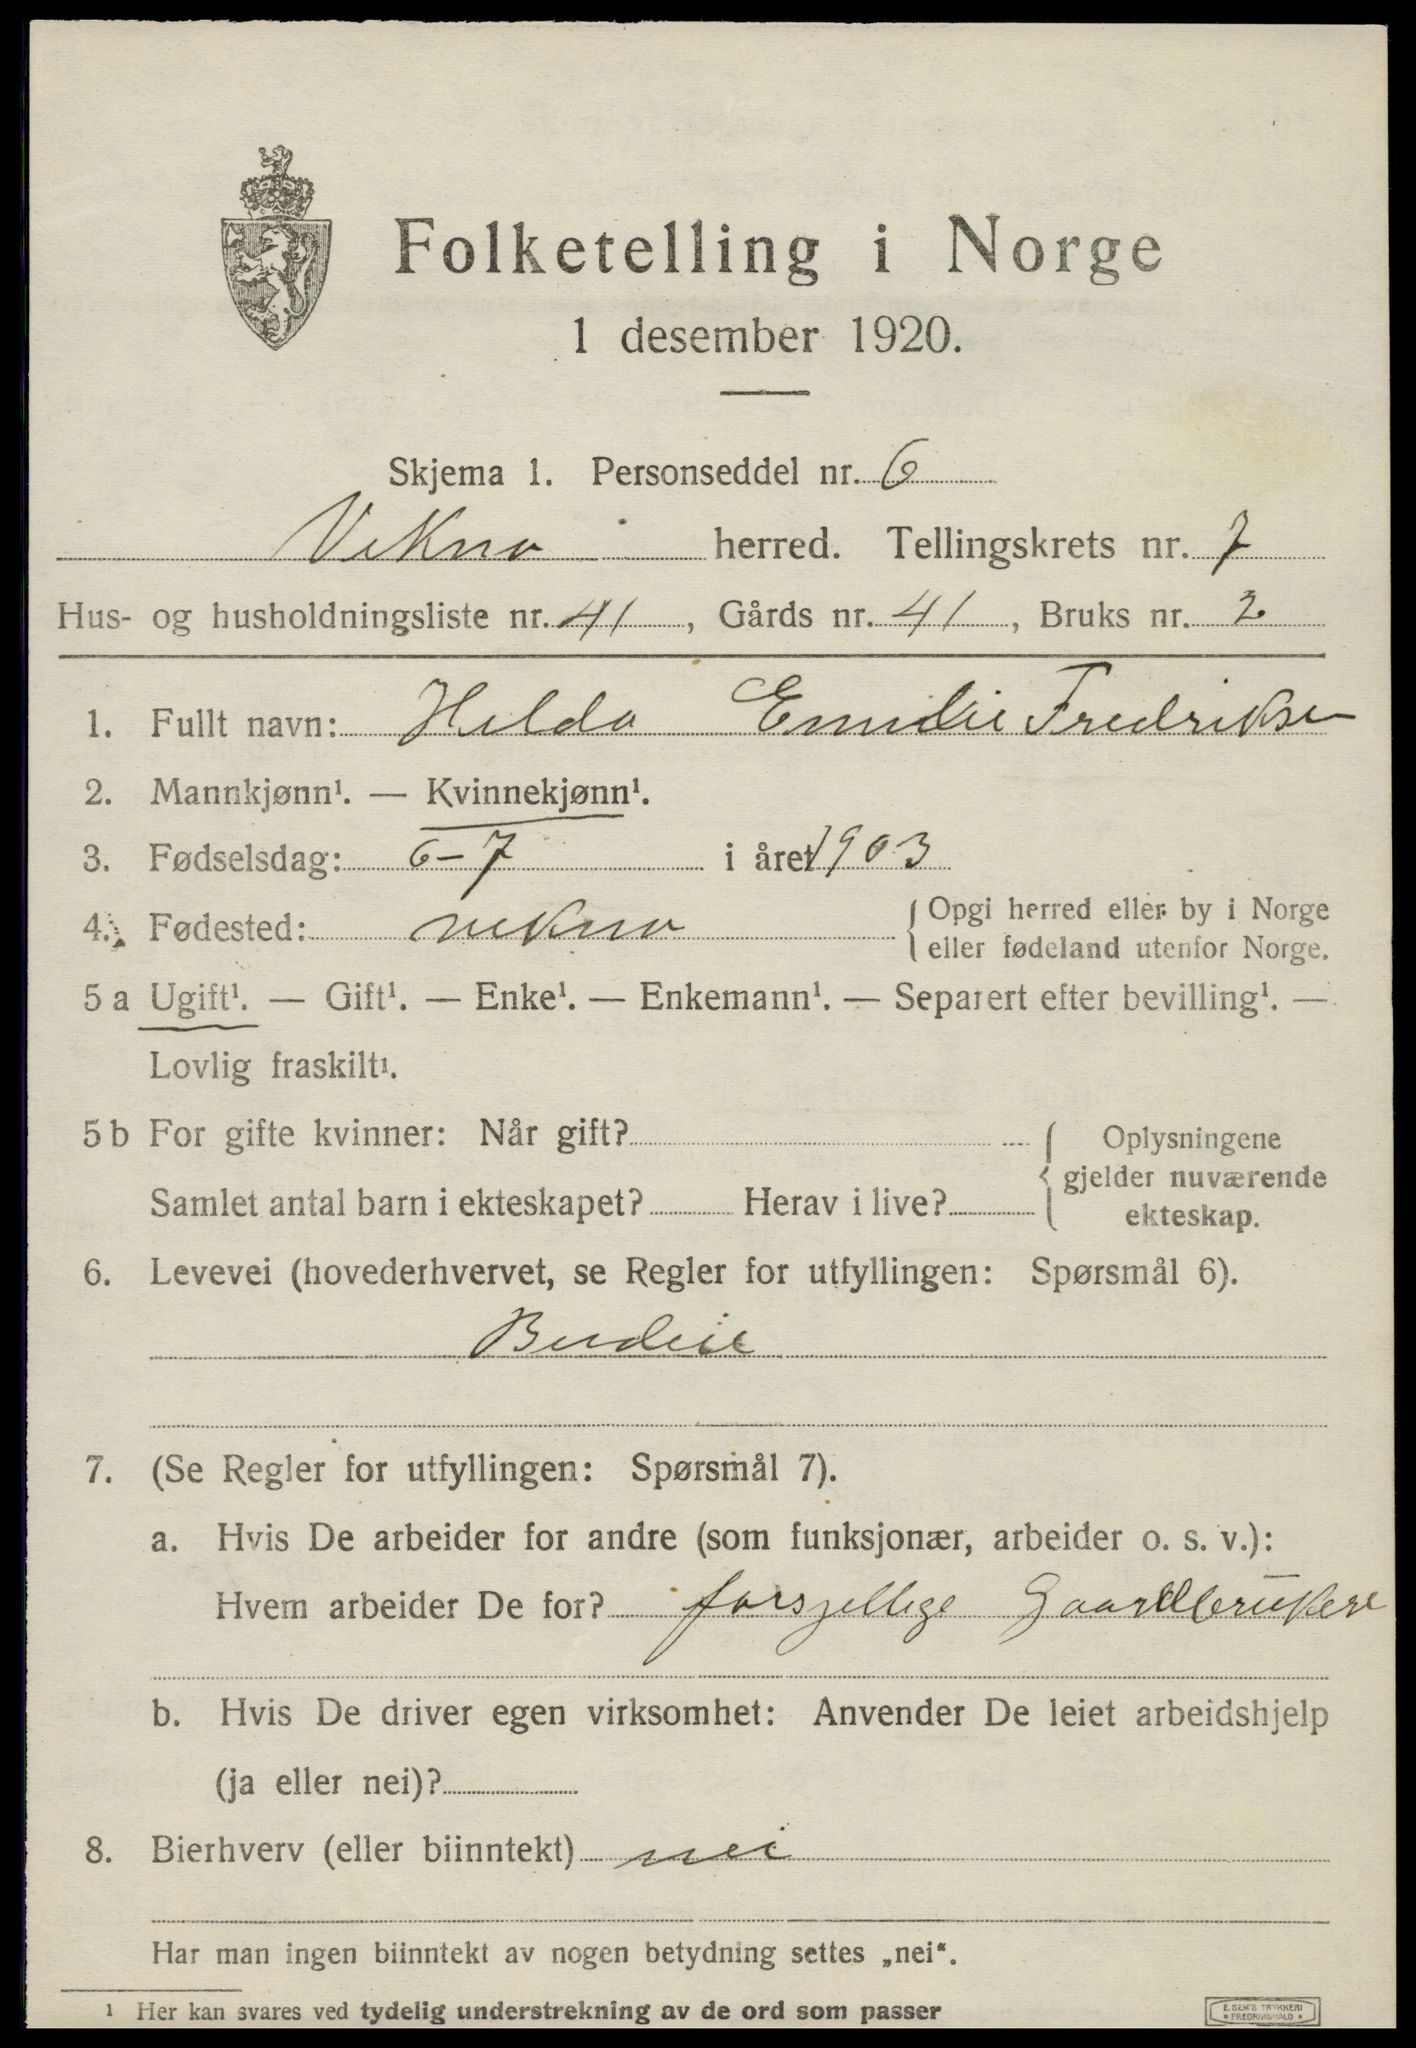 Folketelling i Norge
1 desember 1920.
Skjema 1. Personseddel nr. 6
Vikna herred. Tellingskrets nr. 7
Hus- og husholdningsliste nr. 41, Gårds nr. 41, Bruks nr. 2
1. Fullt navn: Helda Emelie Fredrikse
2. Mannkjønn¹. — Kvinnekjønn¹.
3. Fødselsdag: 6-7 i året 1903
4. Fødested: vikna { Opgi herred eller by i Norge
eller fødeland utenfor Norge.
5 a Ugift¹. — Gift¹. — Enke¹. — Enkemann¹. — Separert efter bevilling¹. —
Lovlig fraskilt¹.
5 b For gifte kvinner: Når gift? { Oplysningene
gjelder nuværende
Samlet antal barn i ekteskapet? Herav i live? ekteskap.
6. Levevei (hovederhvervet, se Regler for utfyllingen: Spørsmål 6).
Budeie
7. (Se Regler for utfyllingen: Spørsmål 7).
a. Hvis De arbeider for andre (som funksjonær, arbeider o. s. v.):
Hvem arbeider De for? forsjellige Gaardbrukere
b. Hvis De driver egen virksomhet: Anvender De leiet arbeidshjelp
(ja eller nei)?
8. Bierhverv (eller biinntekt) nei
Har man ingen biinntekt av nogen betydning settes „nei“.
¹ Her kan svares ved tydelig understrekning av de ord som passer
E. SEM'S TRYKKERI
FREDRIKSHALD